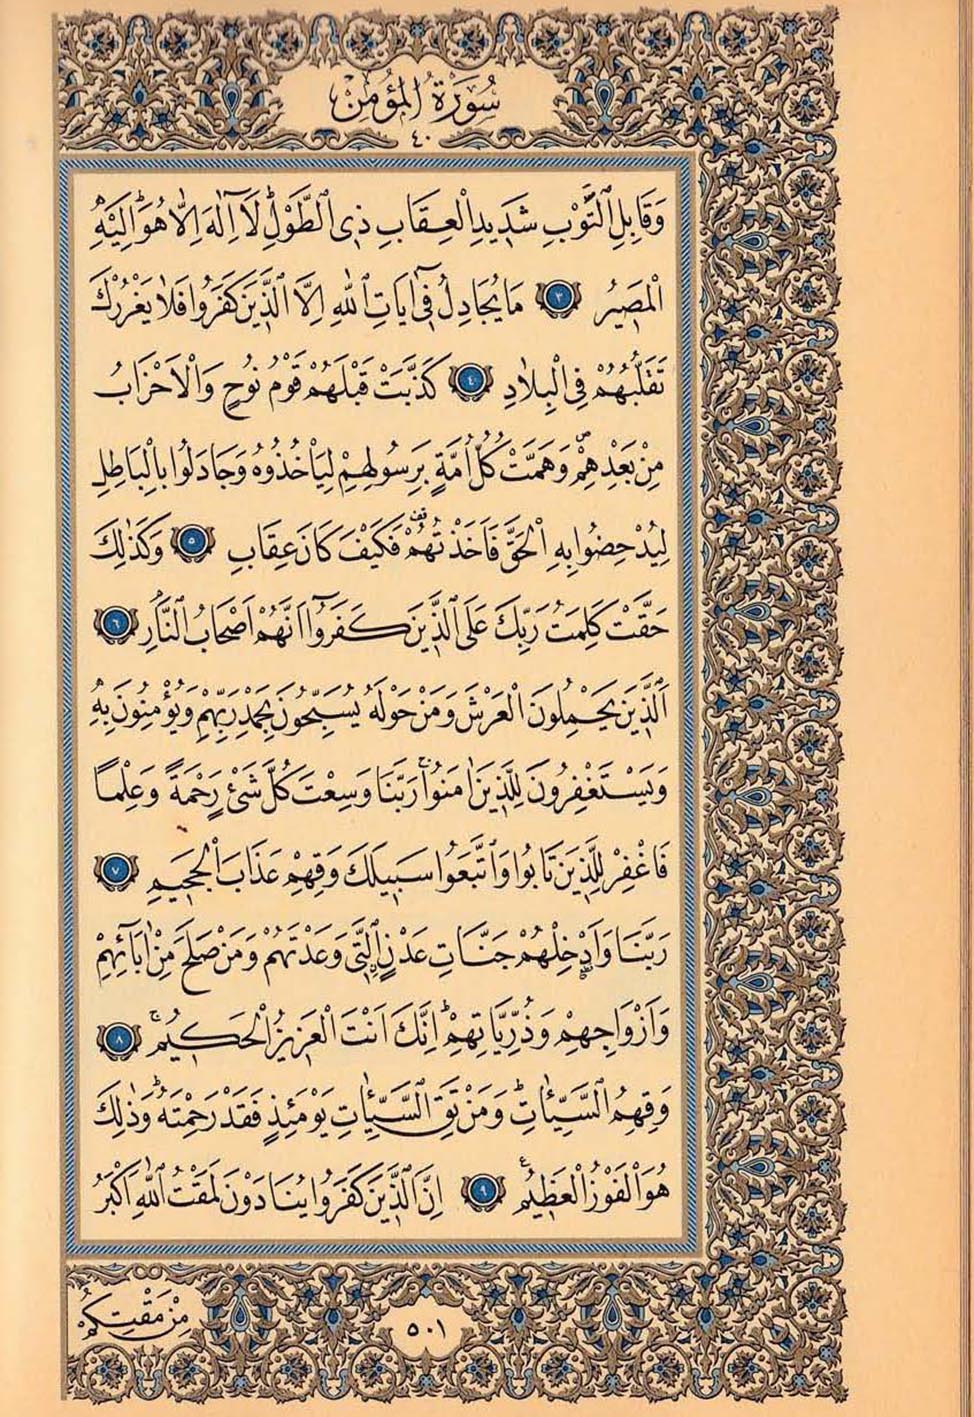 سُورَةُ الْمُؤْمِنِ
٤٠
وَقَابِلِ التَّوْبِ شَدِيدِ الْعِقَابِ ذِى الطَّوْلِ لَٓا اِلٰهَ اِلَّا هُوَ اِلَيْهِ
الْمَصِيرُ ﴿٣﴾ مَا يُجَادِلُ فٓى اٰيَاتِ اللّٰهِ اِلَّا الَّذِينَ كَفَرُوا فَلَا يَغْرُرْكَ
تَقَلُّبُهُمْ فِى الْبِلَادِ ﴿٤﴾ كَذَّبَتْ قَبْلَهُمْ قَوْمُ نُوحٍ وَالْاَحْزَابُ
مِنْ بَعْدِهِمْ وَهَمَّتْ كُلُّ اُمَّةٍ بِرَسُولِهِمْ لِيَأْخُذُوهُ وَجَادَلُوا بِالْبَاطِلِ
لِيُدْحِضُوا بِهِ الْحَقَّ فَاَخَذْتُهُمْ فَكَيْفَ كَانَ عِقَابِ ﴿٥﴾ وَكَذٰلِكَ
حَقَّتْ كَلِمَتُ رَبِّكَ عَلَى الَّذِينَ كَفَرُٓوا اَنَّهُمْ اَصْحَابُ النَّارِ ﴿٦﴾
اَلَّذِينَ يَحْمِلُونَ الْعَرْشَ وَمَنْ حَوْلَهُ يُسَبِّحُونَ بِحَمْدِ رَبِّهِمْ وَيُؤْمِنُونَ بِهِ
وَيَسْتَغْفِرُونَ لِلَّذِينَ اٰمَنُوا رَبَّنَا وَسِعْتَ كُلَّ شَىْءٍ رَحْمَةً وَعِلْمًا
فَاغْفِرْ لِلَّذِينَ تَابُوا وَاتَّبَعُوا سَبِيلَكَ وَقِهِمْ عَذَابَ الْجَحِيمِ ﴿٧﴾
رَبَّنَا وَاَدْخِلْهُمْ جَنَّاتِ عَدْنٍ الَّتِى وَعَدْتَهُمْ وَمَنْ صَلَحَ مِنْ اٰبَٓائِهِمْ
وَاَزْوَاجِهِمْ وَذُرِّيَّاتِهِمْ اِنَّكَ اَنْتَ الْعَزِيزُ الْحَكِيمُ ﴿٨﴾
وَقِهِمُ السَّيِّـَٔاتِ وَمَنْ تَقِ السَّيِّـَٔاتِ يَوْمَئِذٍ فَقَدْ رَحِمْتَهُ وَذٰلِكَ
هُوَ الْفَوْزُ الْعَظِيمُ ﴿٩﴾ اِنَّ الَّذِينَ كَفَرُوا يُنَادَوْنَ لَمَقْتُ اللّٰهِ اَكْبَرُ
مِنْ مَقْتِكُمْ
٥٠١